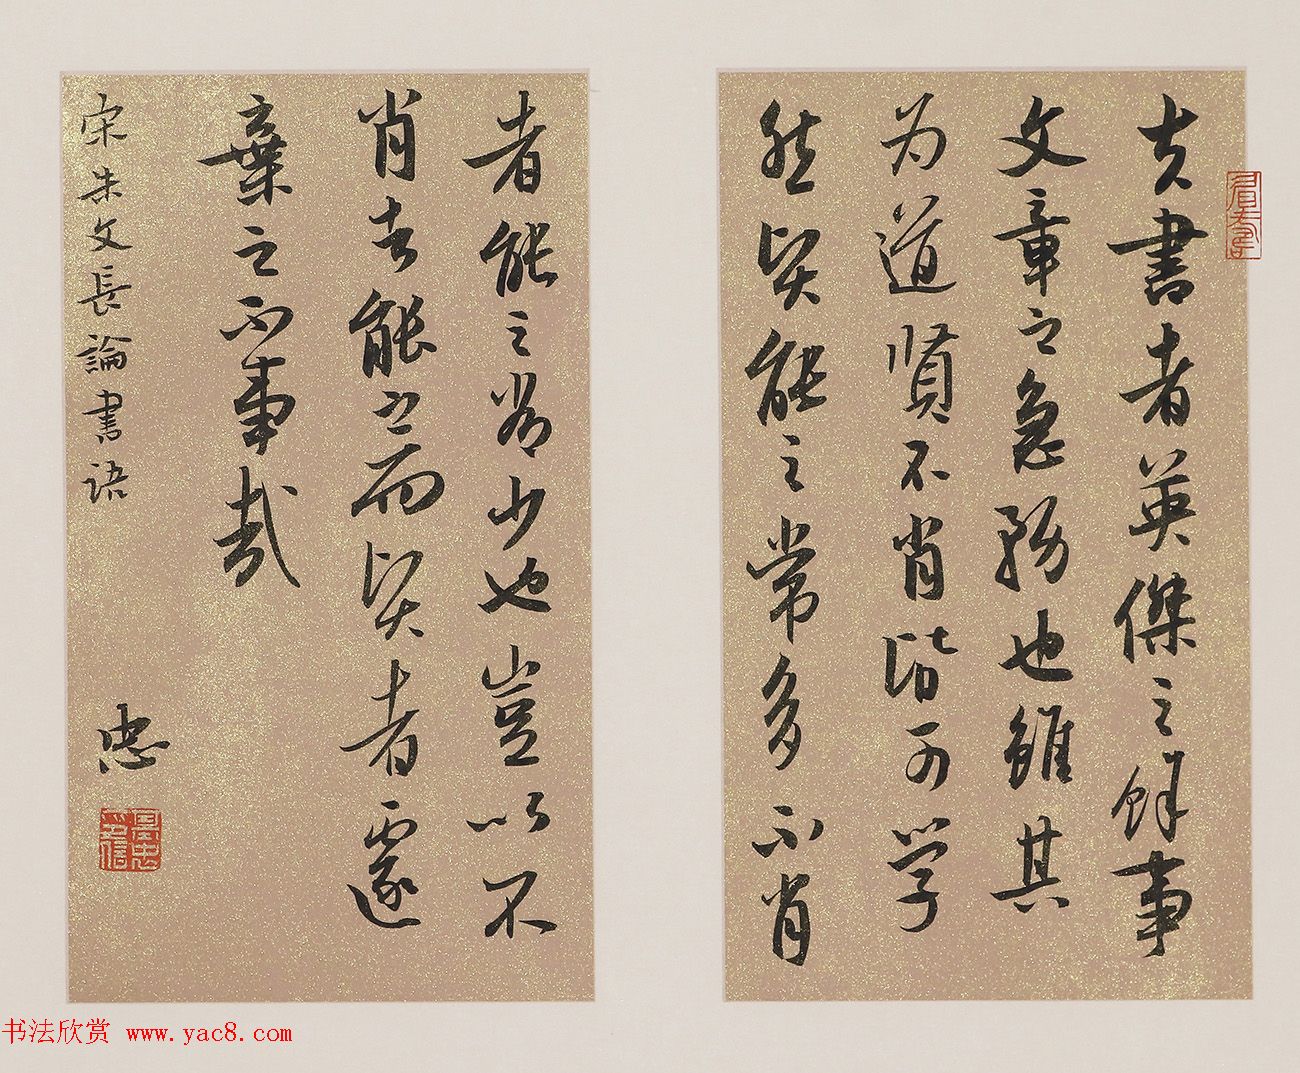 夫書者英傑之餘事
文章之急務也雖其
为道賢不肖皆可学
然賢能之常多不肖
者能之常少也豈以不
肖者能之而賢者遽
棄之不事哉
宋朱文長論書語
忠
书法欣赏 www.yac8.com